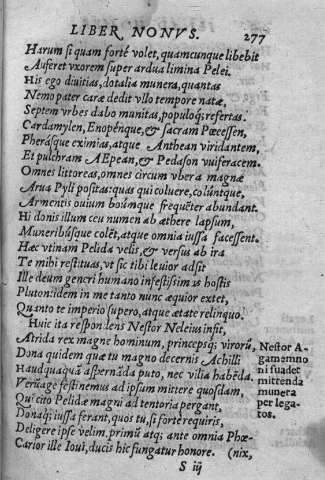 LIBER NONVS. 277
Harum si quam fortè volet, quamcunque libebit
Auferet vxorem super ardua limina Pelei.
His ego diuitias, dotalia munera, quantas
Nemo pater caræ dedit vllo tempore natæ,
Septem vrbes dabo munitas, populoq; refertas.
Cardamylen, Enopénque, & sacram Pœeessen,
Pherásque eximias, atque Anthean viridantem,
Et pulchram AEpean, & Pedason vuiferacem.
Omnes littoreas, omnes circum vbera magnæ
Arua Pyli positas: quas qui coluere, colúntque,
Armentis ouium boúmque frequēter abundant.
Hi donis illum ceu numen ab æthere lapsum,
Muneribúsque colēt, atque omnia iussa facessent.
Hæc vtinam Pelida velis, & versus ab ira
Te mihi restituas, vt sic tibi leuior adsit
Ille deum generi humano infestissimus hostis
Pluton: idem in me tanto nunc æquior extet,
Quanto te imperio supero, atque ætate relinquo.
Huic ita respondens Nestor Neleius insit,
Atrida rex magne hominum, princepsq; virorū,
Dona quidem quæ tu magno decernis Achilli
Haudquaquā aspernāda puto, nec vilia habēda.
Verū age festinemus ad ipsum mittere quosdam,
Qui citò Pelidæ magni ad tentoria pergant,
Donaq; iussa ferant, quos tu, si fortè requiris,
Deligere ipse velim, primū atq; ante omnia Phœ-
Carior ille Ioui, ducis hic fungatur honore. (nix,
Nestor A-
gamemno
ni suadet
mittenda
munera
per lega-
tos.
S iij